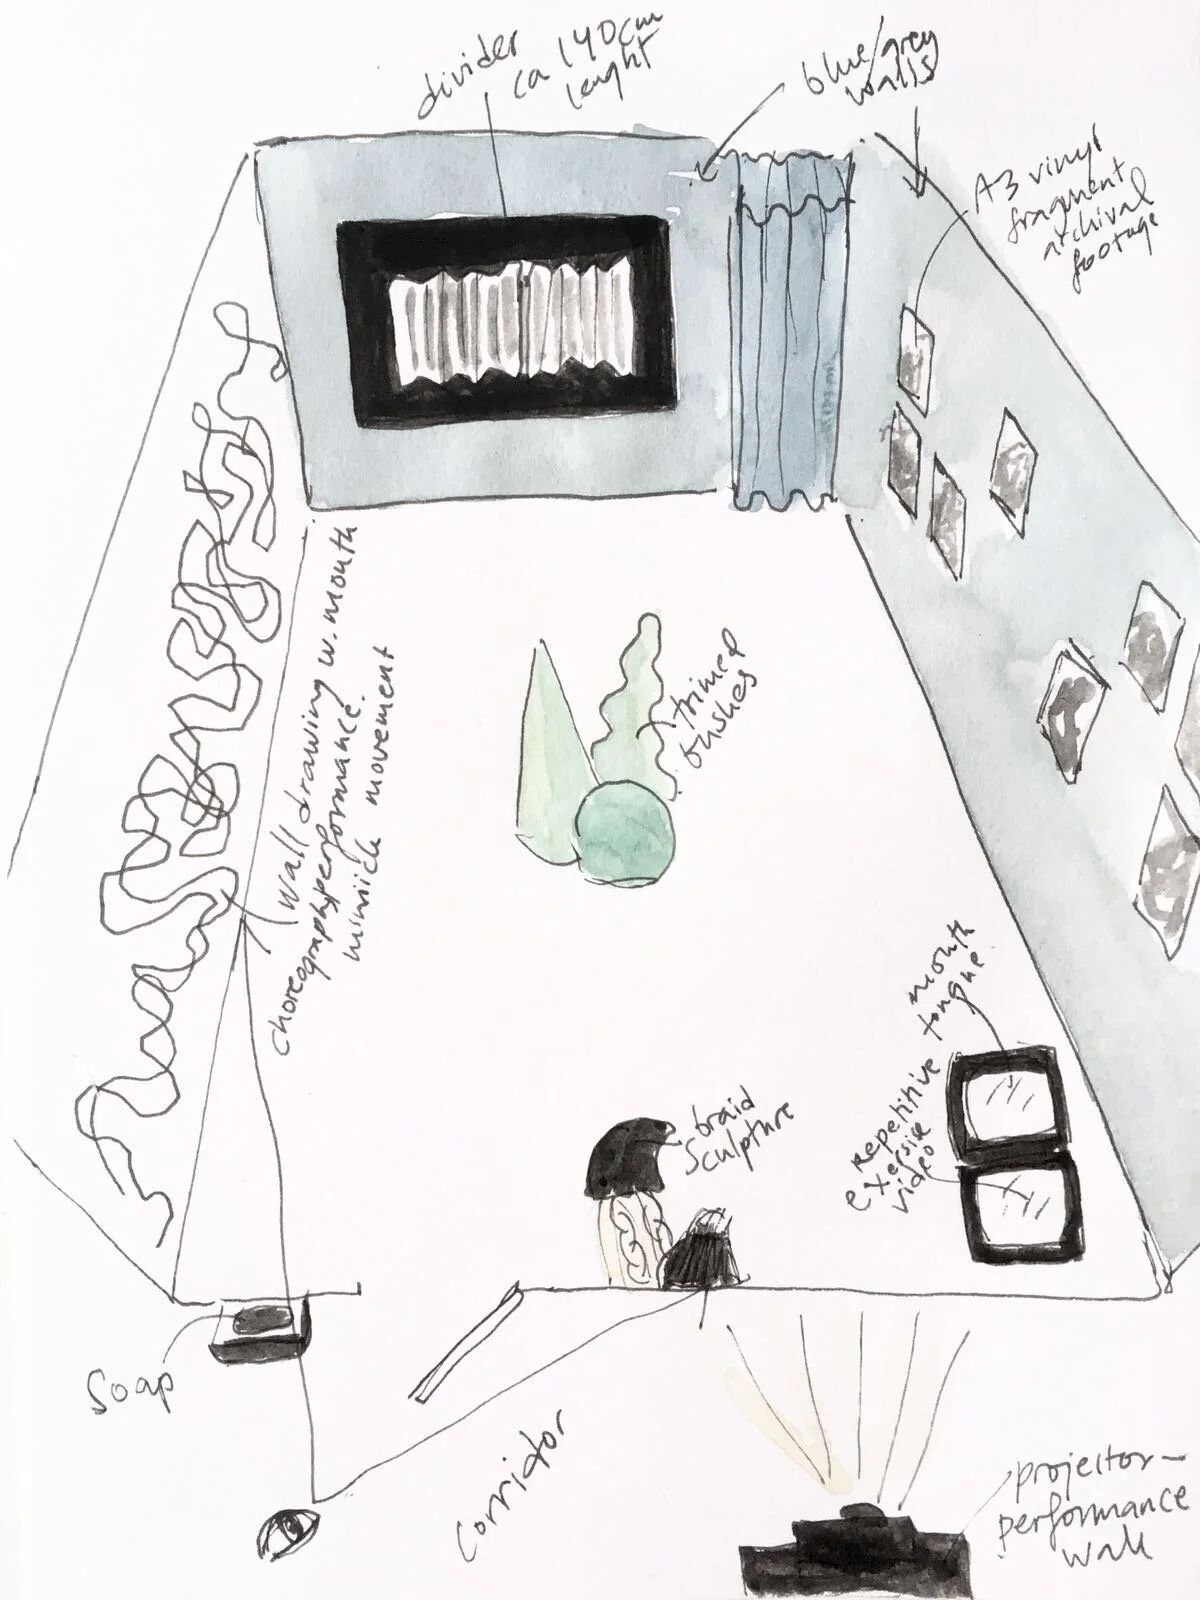 divider
ca 140cm
lenght
blue/grey
walls
A3 vinyl
fragment
archival
footage
wall drawing w. mouth
choreography performance.
mimick movement
trimed
bushes
mouth
tongue
repetitive
exersise
video
braid
sculpture
Soap
corridor
projector-
performance
walk